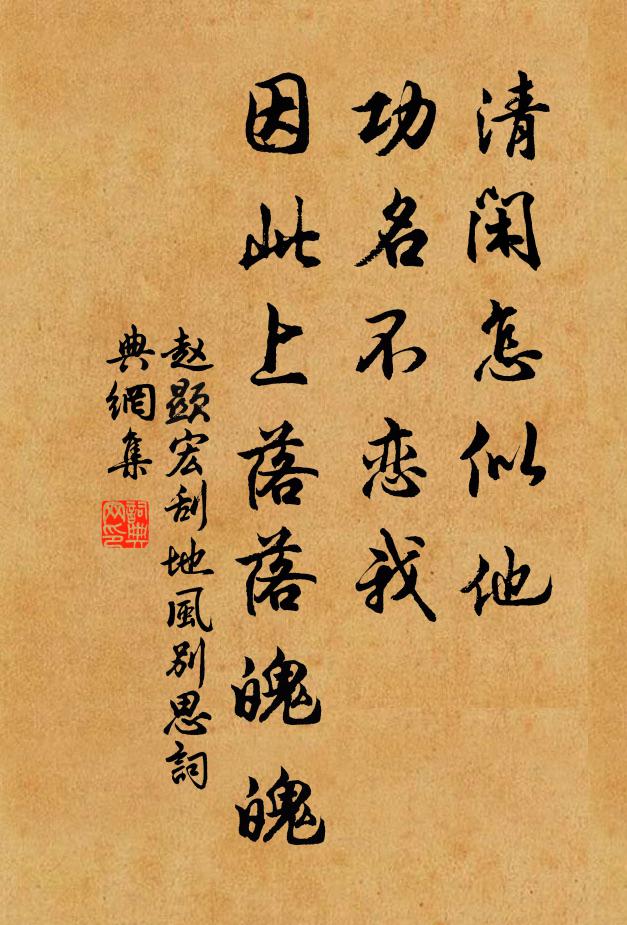 清闲怎似他
功名不恋我
因此上落落魄魄
赵顕宏刮地風别思詞
典網集
詞典
网印